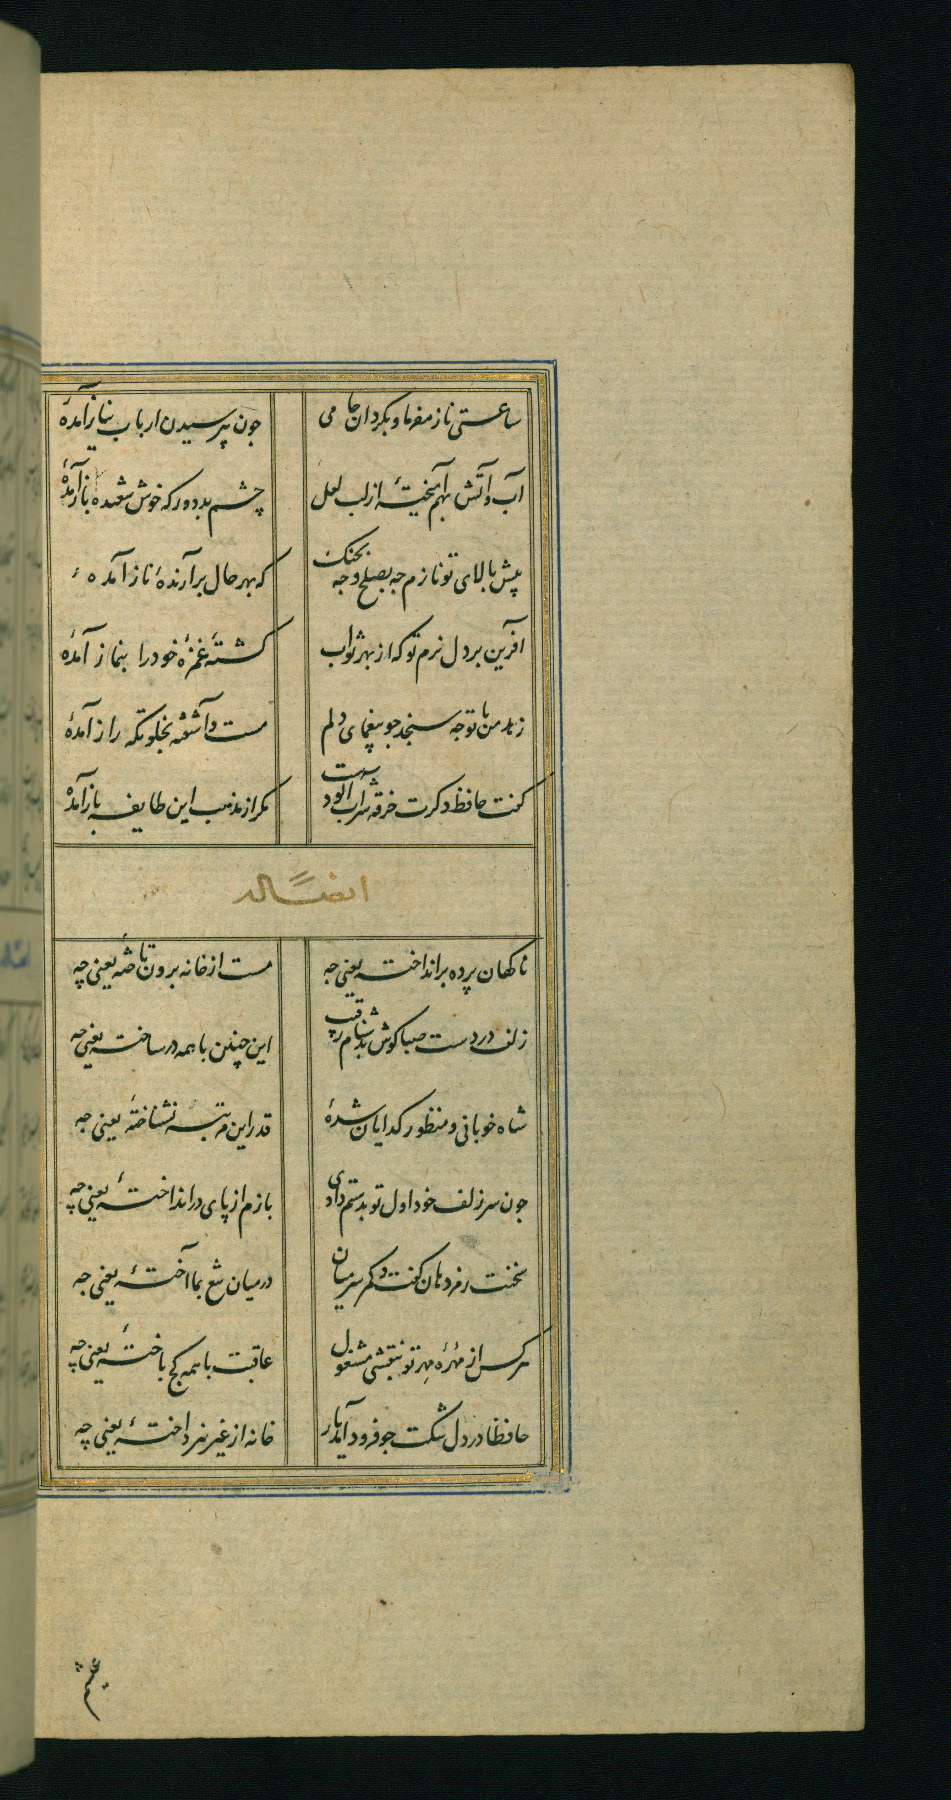 ساعتی ناز مفرما و بکردان جامی
چون پرسیدن ارباب نیاز آمدهٔ
آب و آتش بهم آمیختهٔ از لب لعل
چشم بد دور که خوش شعبده باز آمدهٔ
پیش بالای تو نازم چه بصلح و چه بجنک
که بهر حال برآرندهٔ ناز آمدهٔ
آفرین بر دل نرم تو که از بهر ثواب
کشتهٔ غمزهٔ خود را بنماز آمدهٔ
زهد من با تو چه سنجد چو بیغمای دلم
مست و آشفته بخلوتکه راز آمدهٔ
کفت حافظ دکرت خرقه شراب آلودست
مکر از مذهب این طایفه باز آمدهٔ
ایضاً له
ناکهان پرده برانداختهٔ یعنی چه
مست از خانه برون تاختهٔ یعنی چه
زلف در دست صبا کوش بپیغام رقیب
این چنین با همه در ساختهٔ یعنی چه
شاه خوبانی و منظور کدایان شدهٔ
قدر این مرتبه نشناختهٔ یعنی چه
چون سر زلف خود اول تو بدستم دادی
بازم از پای در انداختهٔ یعنی چه
سخنت رمز دهان کفت و کمر سر میان
در میان تیغ بما آختهٔ یعنی چه
هر کس از مهرهٔ مهر تو بنقشی مشغول
عاقبت با همه کج باختهٔ یعنی چه
حافظا در دل تنکت چو فرود آمد یار
خانه از غیر نپرداختهٔ یعنی چه